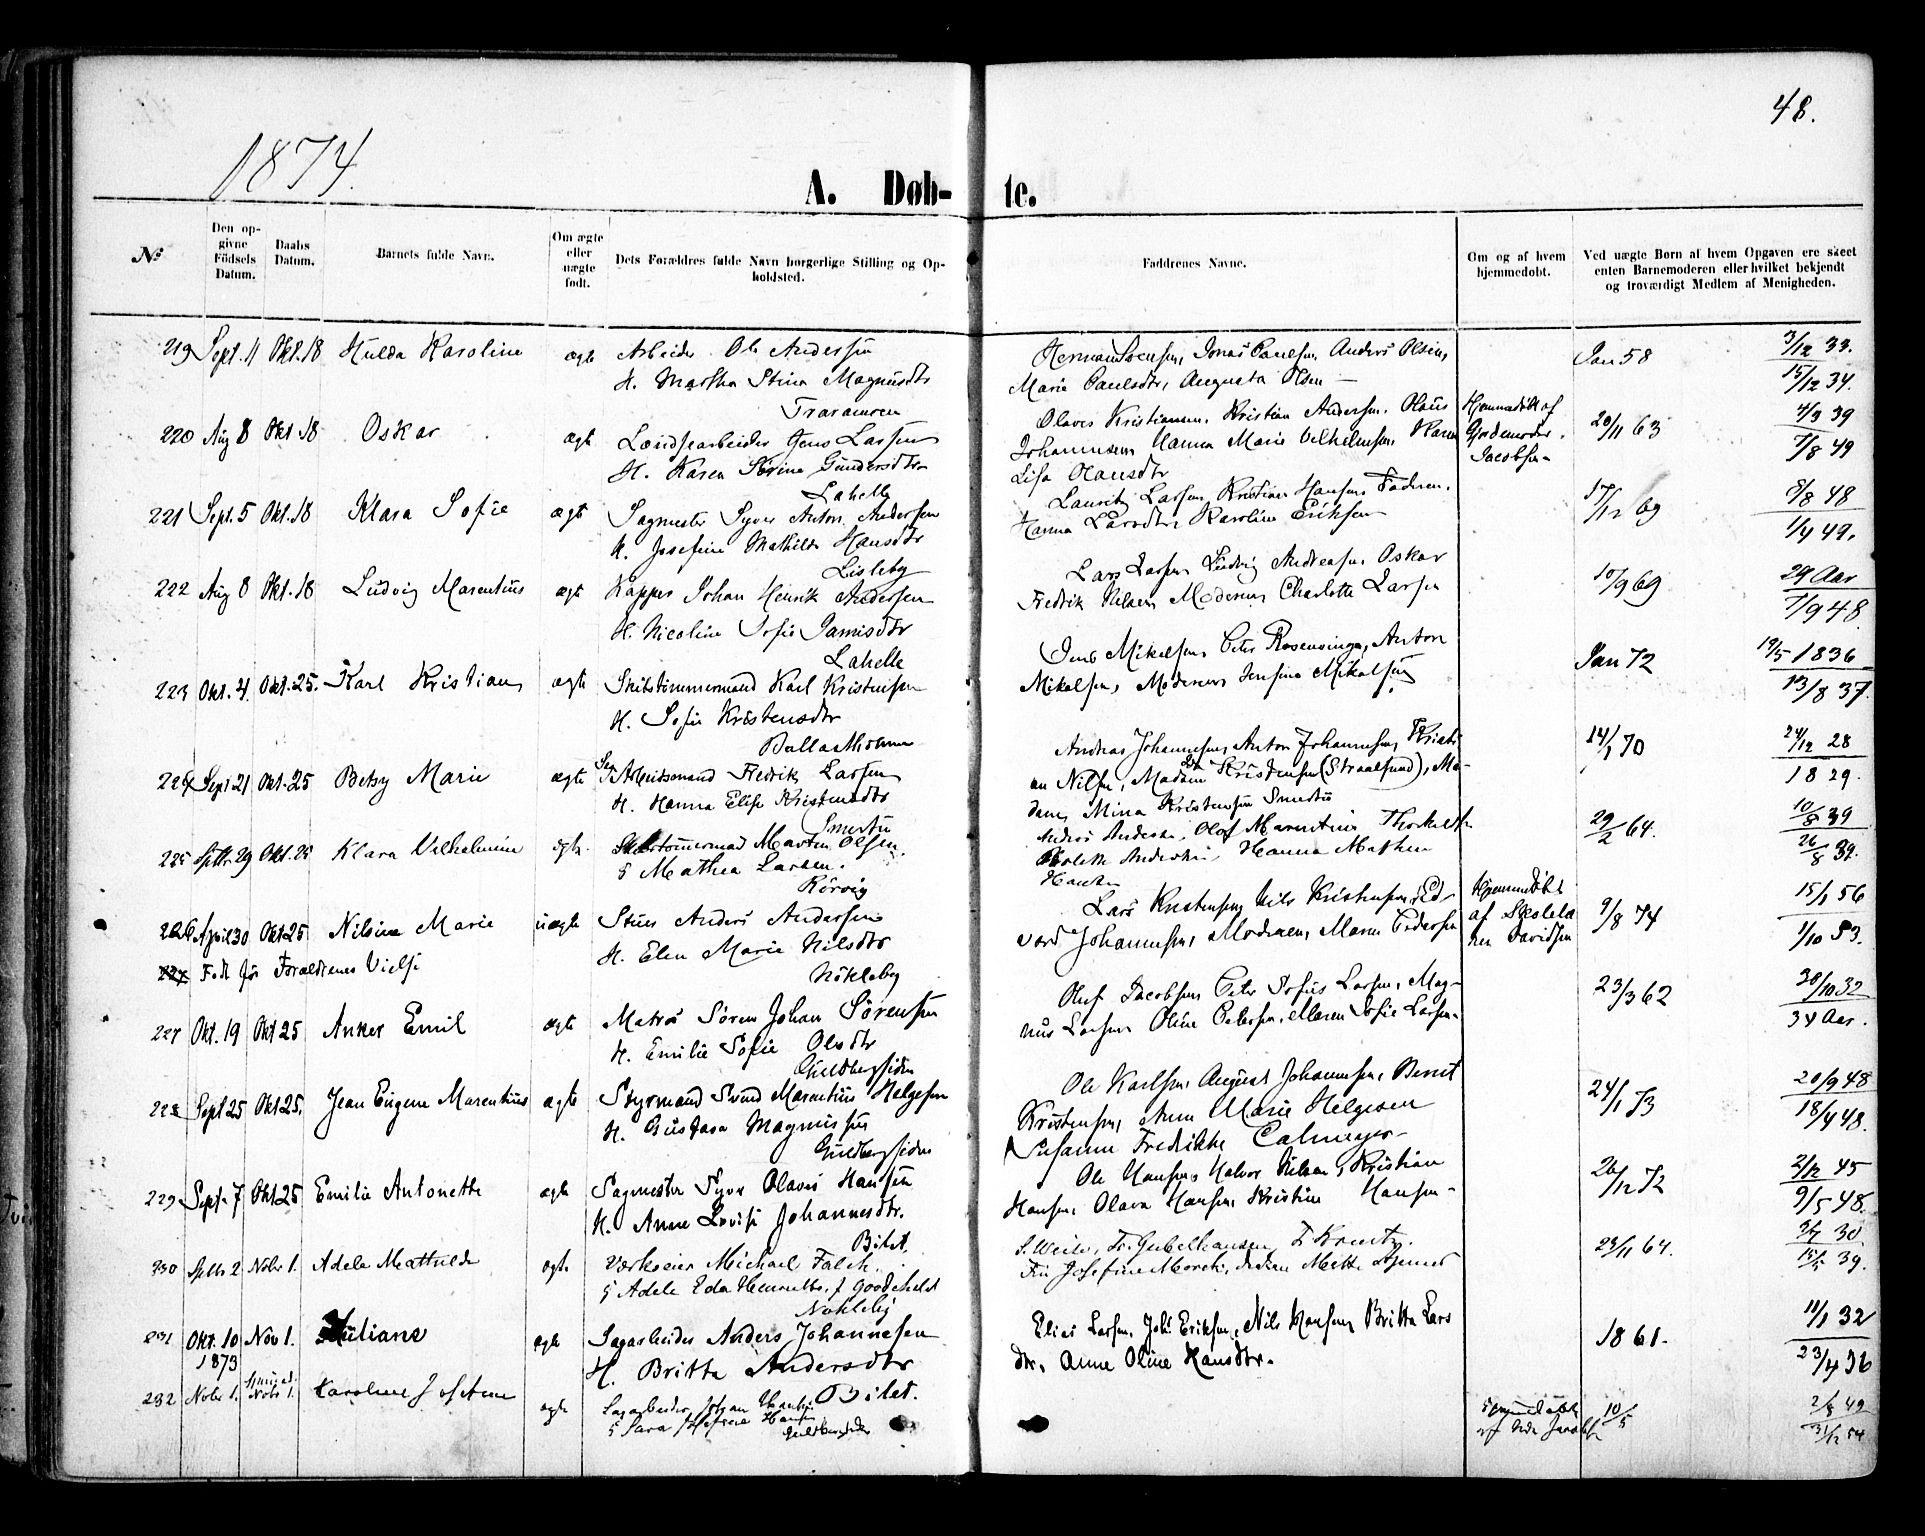 48.
1874.
A. Døb-
te.
No
Den op-
givne
Födsels
Datum.
Daabs
Datum.
Barnets fulde Navn.
Om ægte
eller
uægte
födt.
Dets Forældres fulde Navn borgerlige Stilling og Op-
holdsted.
Faddrenes Navne.
Om og af hvem
hjemmedobt.
Ved uægte Børn af hvem Opgaven ere skeet
enten Barnemoderen eller hvilket bekjendt
og troværdigt Medlem af Menigheden.
219 Sept. 11 Okt. 18 Hulda Karoline ægte Arbeider Ole Andersen
H. Martha Stina Magnusdtr
Traraveien
Herman Svensen, Jonas Paulsen, Anders Olsen,
Marie Paulsdtr, Augusta Olsen
Jan 58
3/12 33.
15/12 34.
220 Aug 8 Okt 18 Oskar ægte Landsearbeider Jens Larsen
H. Karen Serine Gundersdtr
Lahelle
Olaves Kristiansen, Kristian Andersen, Olaus
Johannesen, Hanna Marie Vilhelmsen, Karen
Lisa Olausdtr
Hjemmedöbt af
Gjordemoder
Jacobsen
20/11 63
4/3 39
7/8 49
221 Sept. 5 Okt. 18 Klara Sofie ægte Sagmester Syver Anton Andersen
H. Josefine Mathilde Hansdtr
Lisleby
Lauritz Larsen, Kristian Hansen, Faderen,
Hanna Larsdtr, Karoline Eriksen
17/12 69
8/8 48
1/4 49.
222 Aug 8 Okt. 18 Ludvig Marentius ægte Kapper Johan Henrik Andersen
H. Nicoline Sofie Jamisdtr
Lahelle
Lars Larsen, Ludvig Andreasen, Oskar
Fredrik Nilsen, Moderen, Charlotte Larsen
10/9 69
29 Aar
7/9 48
223 Okt. 4. Okt. 25. Karl Kristian ægte Skibstømmermand Karl Kristensen
H. Sofie Kristensdtr
Ballastholmen
Jens Mikalsen, Peter Rosensinge, Anton
Mikalsen, Moderen, Jensine Mikalsen
Jan 72
19/5 1836
13/8 37.
224 Sept 21 Okt. 25 Betsy Marie ægte Arbeidsmand Fredrik Larsen
H. Hanna Elise Kristensdtr
Smertu
Andreas Johannesen, Anton Johannesen, Kristi-
an Nilsen, Madam Kristensen (Straalsund), Ma-
dam Mina Kristensen Smertu
14/1 70
24/12 28
1829.
225 Septbr. 29 Okt. 25 Klara Vilhelmine ægte Martin Olsen.
H Mathea Larsen.
Rörvig
Anders Andersen, Olof Marentius Thorkildsen
Andersen, Hanna Mathea
Hansen
29/2 64.
10/8 39
26/8 39.
226 April 30 Okt 25 Nilsine Marie uægte Stuer Anders Andersen
H. Elen Marie Nilsdtr
Nökleby
Födt för Foraldrenes Vielse
Lars Kristensen, Nils Kristensen, Ed-
vard Johannesen, Moderen, Maren Pedersen
Hjemmedöbt
af Skolelæ
rer Davidsen
9/8 74
15/1 56
1/10 53.
227 Okt. 19 Okt 25 Anker Emil ægte Matros Sören Johan Sörensen
H. Emilie Sofie Olsdtr
Guldbergsiden
Oluf Jacobsen, Peter Sofus Larsen, Mag-
nus Larsen, Oline Petersen, Maren Sofie Larsen
23/3 62
30/10 32
34 Aar.
228 Sept 25 Okt 25. Jean Eugene Marentius ægte Styrmand Svend Marentius Helgesen
H. Gustava Magnussen
Guldbergsiden
Ole Karlsen, August Johannesen, Bernt
Kristensen, Anne Marie Helgesen
Susanne Fredrikke Calmeyer
24/1 73
20/9 48
18/4 48.
229 Sept. 7 Okt 25 Emilie Antonette ægte Sagmester Syver Olaves Hansen
H. Anne Lovise Johannesdtr.
Bilet.
Ole Hansen, Halvor Nilsen, Kristian
Hansen, Olava Hansen, Kristine Hansen
26/12 72
2/12 45
9/5 48.
230 Septbr. 2 Nobr 1. Adele Mathilde ægte Værkseier Michael Falck
H Adele Eda Henriette f
Nökleby
23/11 64.
30
15/5 39.
231 Okt. 10 Nov 1. Juliane ægte Sagarbeider Anders Johannesen
H. Britta Andersdtr
Bilet.
Elias Larsen, Johs Eriksen, Nils Hansen, Britta Lars
dtr, Anne Oline Hansdtr.
1861.
11/1 32
23/4 36
1873
232 Nobr 1. Nobr 1. Karoline Josefine ægte Sagarbeider Johan
H Sara Josefine Hansen
Guldbergsiden
10/5
2/8 49
31/12 54